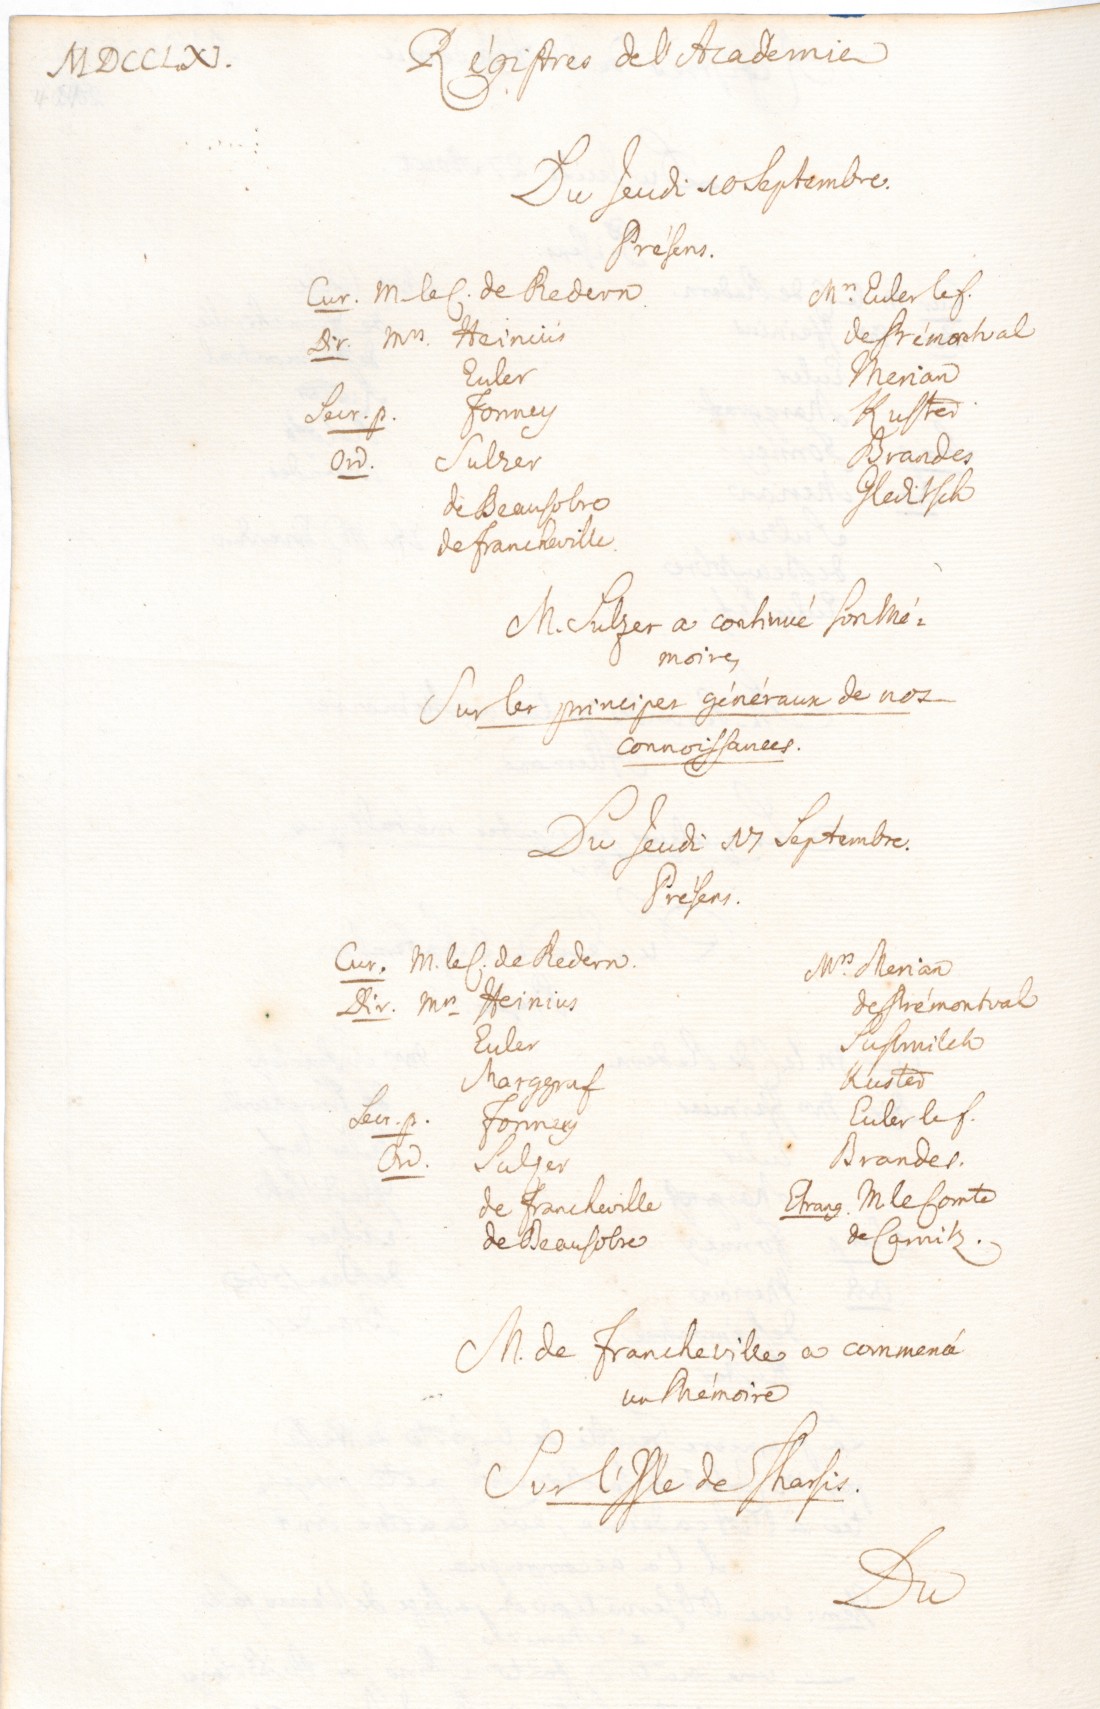 MDCCLXI.
Régistres de l'Academie
Du Jeudi 10 Septembre.
Présens.
Cur. M. le C. de Redern
Dir. Mrs. Heinius
Euler
Secr. p. Formey
Ord. Sulzer
de Beausobre
de Francheville
Mrs Euler le f.
de Prémontval
Merian
Kuster
Brandes
Gleditsch
M. Sulzer a continué son Mé=
moire,
Sur les principes généraux de nos
connoissances.
Du Jeudi 17 Septembre.
Présens.
Cur. M. le C. de Redern.
Dir. Mrs Heinius
Euler
Marggraf
Secr. p. Formey
Ord. Sulzer
de Francheville
de Beausobre
Mrs Merian
de Prémontval
Susmilch
Kuster
Euler le f.
Brandes.
Etrang. M. le Comte
de
M. de Francheville a commencé
un Mémoire
Sur l'Isle de Tharsis.
Du